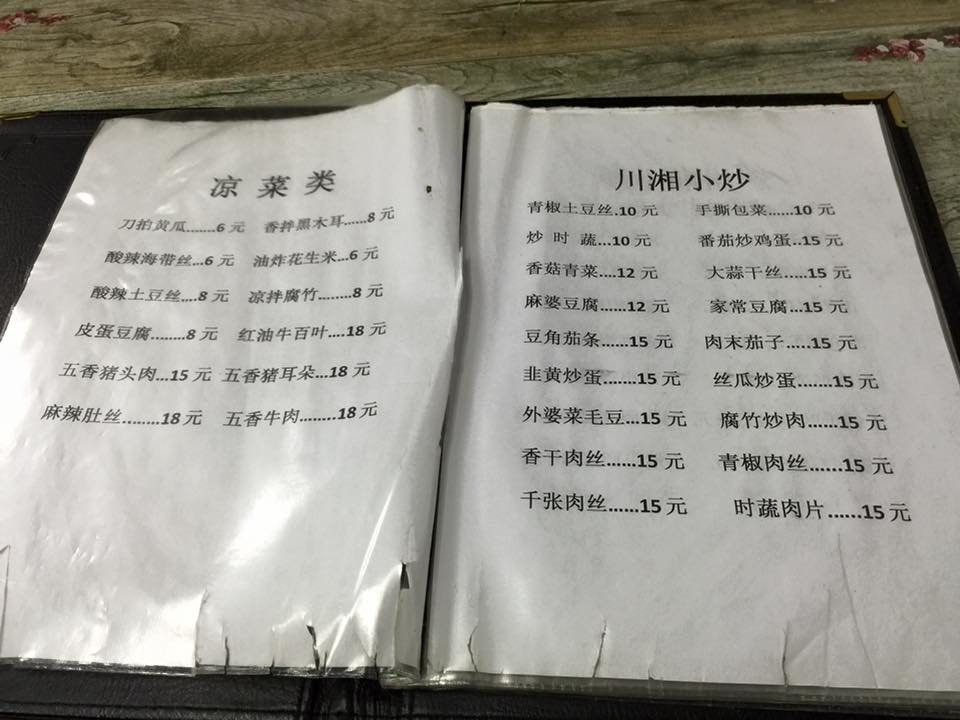 凉菜类
刀拍黄瓜.......6 元 香拌黑木耳......8 元
酸辣海带丝...6 元 油炸花生米...6 元
酸辣土豆丝....8 元 凉拌腐竹........8 元
皮蛋豆腐........8 元 红油牛百叶....18 元
五香猪头肉...15 元 五香猪耳朵...18 元
麻辣肚丝........18 元 五香牛肉........18 元
川湘小炒
青椒土豆丝.10 元 手撕包菜......10 元
炒 时 蔬...10 元 番茄炒鸡蛋..15 元
香菇青菜....12 元 大蒜干丝.....15 元
麻婆豆腐......12 元 家常豆腐...15 元
豆角茄条......15 元 肉末茄子.....15 元
韭黄炒蛋......15 元 丝瓜炒蛋......15 元
外婆菜毛豆...15 元 腐竹炒肉.....15 元
香干肉丝......15 元 青椒肉丝......15 元
千张肉丝......15 元 时蔬肉片......15 元